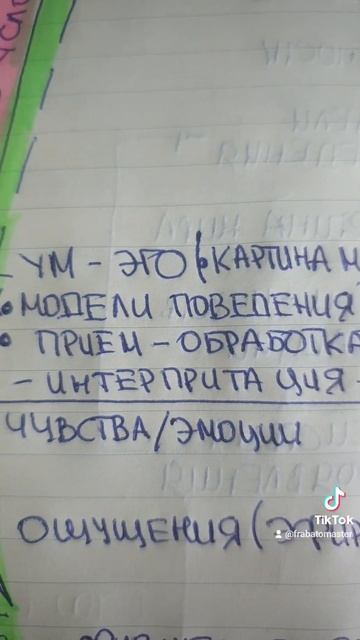 УМ - ЭГО (• КАРТИНА М
• МОДЕЛИ ПОВЕДЕНИЯ
• ПРИЕМ - ОБРАБОТКА
- ИНТЕРПРИТАЦИЯ -
ЧУВСТВА/ЭМОЦИИ
TikTok
@frabatomaster
ОЩУЩЕНИЯ (